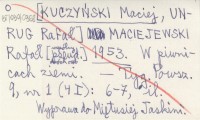 [KUCZYŃSKI Maciej, UN-
RUG Rafał] MACIEJEWSKI
Rafał 1953. W piwni-
cach ziemi. — Dool. Powsz.
9, nr 1 (4 I): 6-7, il.
Wyprawa do Miętusiej Jaskini.